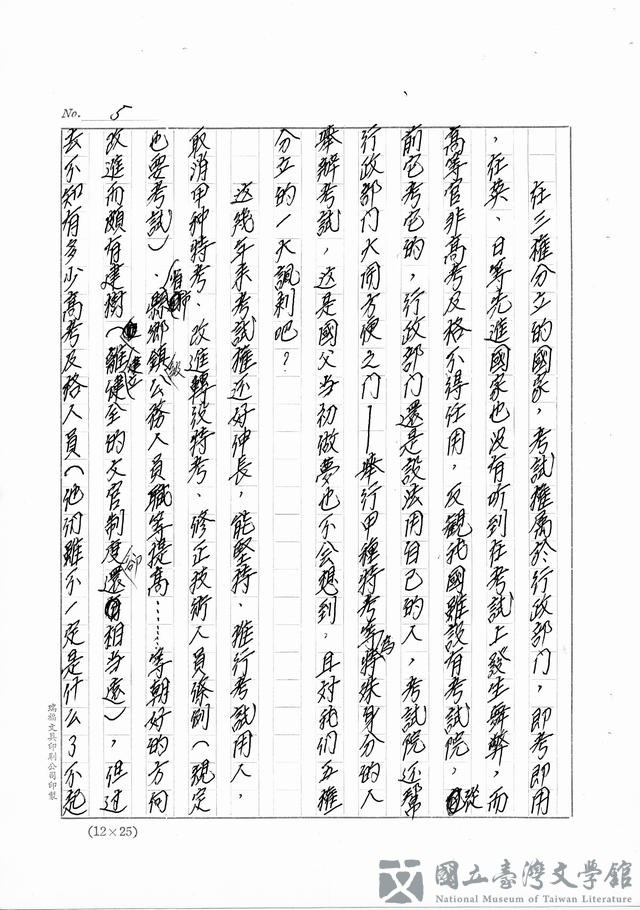 No. 5
在三權分立的國家，考試權屬於行政部門，即考即用
，在英、日等先進國家也没有听到在考試上發生舞弊，而
高等官非高考及格不得任用，反觀我國雖設有考試院，從
前它考它的，行政部门還是設法用自己的人，考試院还幫
行政部门大開方便之门—舉行甲種特考等為特殊身分的人
舉辦考試，这是國父当初做夢也不会想到，且对我们五權
分立的一大諷刺吧？
这幾年来考試權还好伸長，能堅持、推行考試用人，
取消甲种特考、改進轉役特考、修正技術人員條例（規定
也要考試）、縣鄉鎮級公務人員職等提高……等朝好的方向
改進而頗有建樹（離建立健全的文官制度還相当遠），但过
去不知有多少高考及格人員（他们雖不一定是什么了不起
瑞福文具印刷公司印製
(12×25)
國立臺灣文學館
National Museum of Taiwan Literature